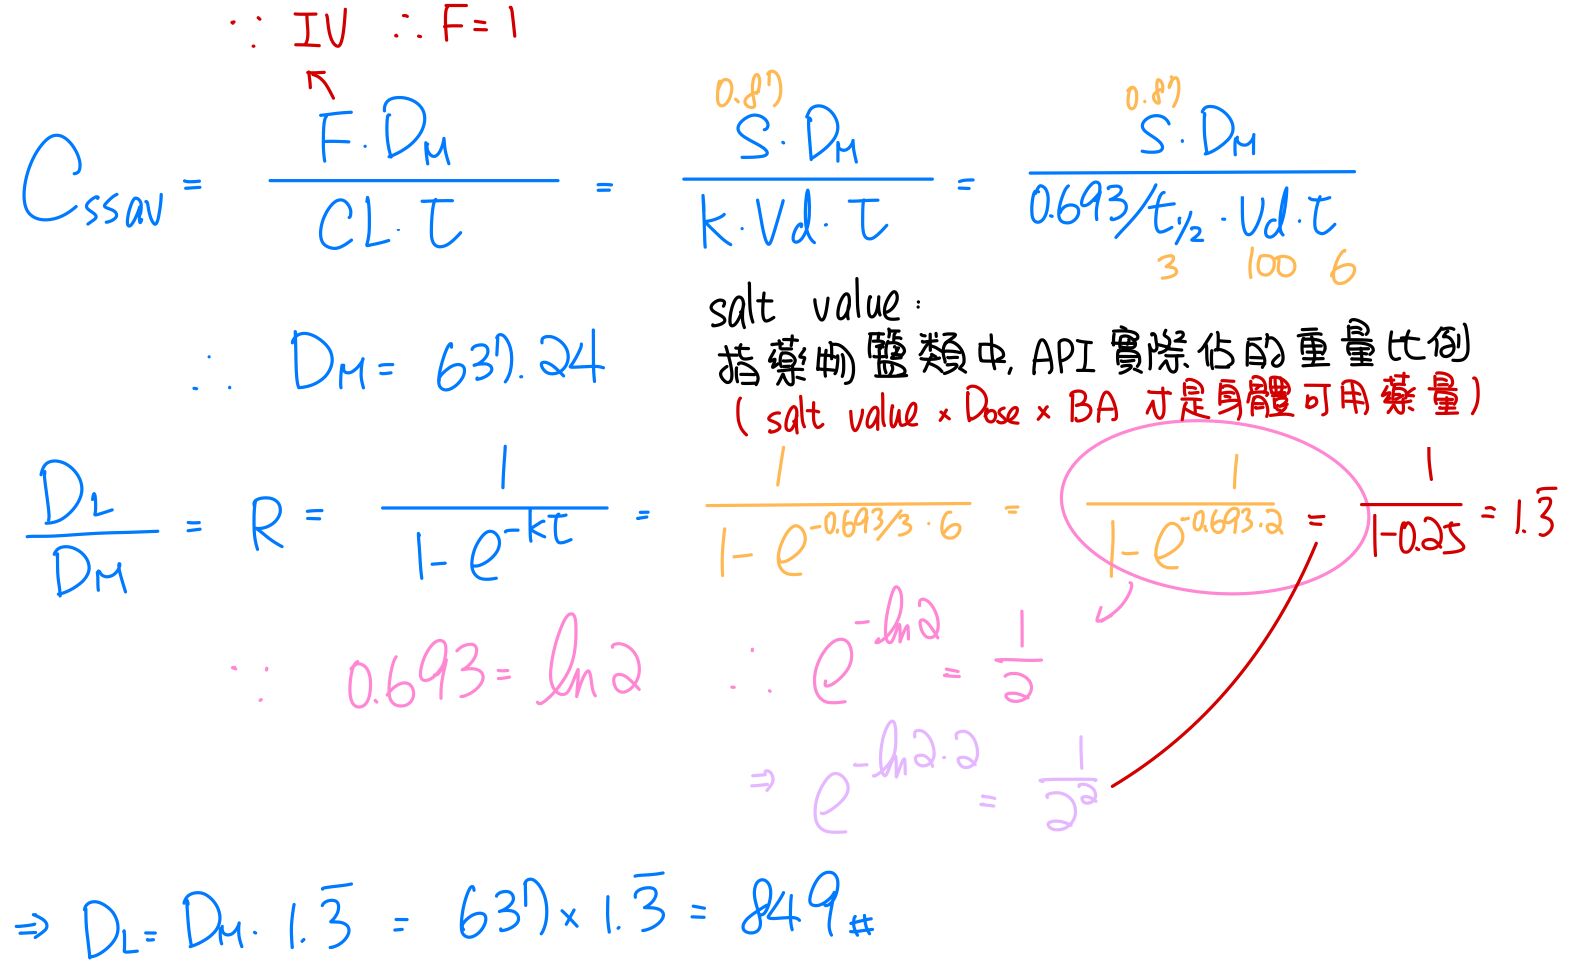 ∵ IV ∴ F = 1
C_ssav = F·D_M / CL·τ = S·D_M / k·Vd·τ = S·D_M / 0.693/t_1/2·Vd·τ
0.87 0.87
3 100 6
∴ D_M = 637.24
salt value:
指藥物鹽類中, API 實際佔的重量比例
( salt value × Dose × BA 才是身體可用藥量)
D_L / D_M = R = 1 / 1-e^-kτ = 1 / 1-e^-0.693/3·6 = 1 / 1-e^-0.693·2 = 1 / 1-0.25 = 1.3̅
∵ 0.693 = ln2 ∴ e^-ln2 = 1/2
⇒ e^-ln2·2 = 1/2²
⇒ D_L = D_M · 1.3̅ = 637 × 1.3̅ = 849 #